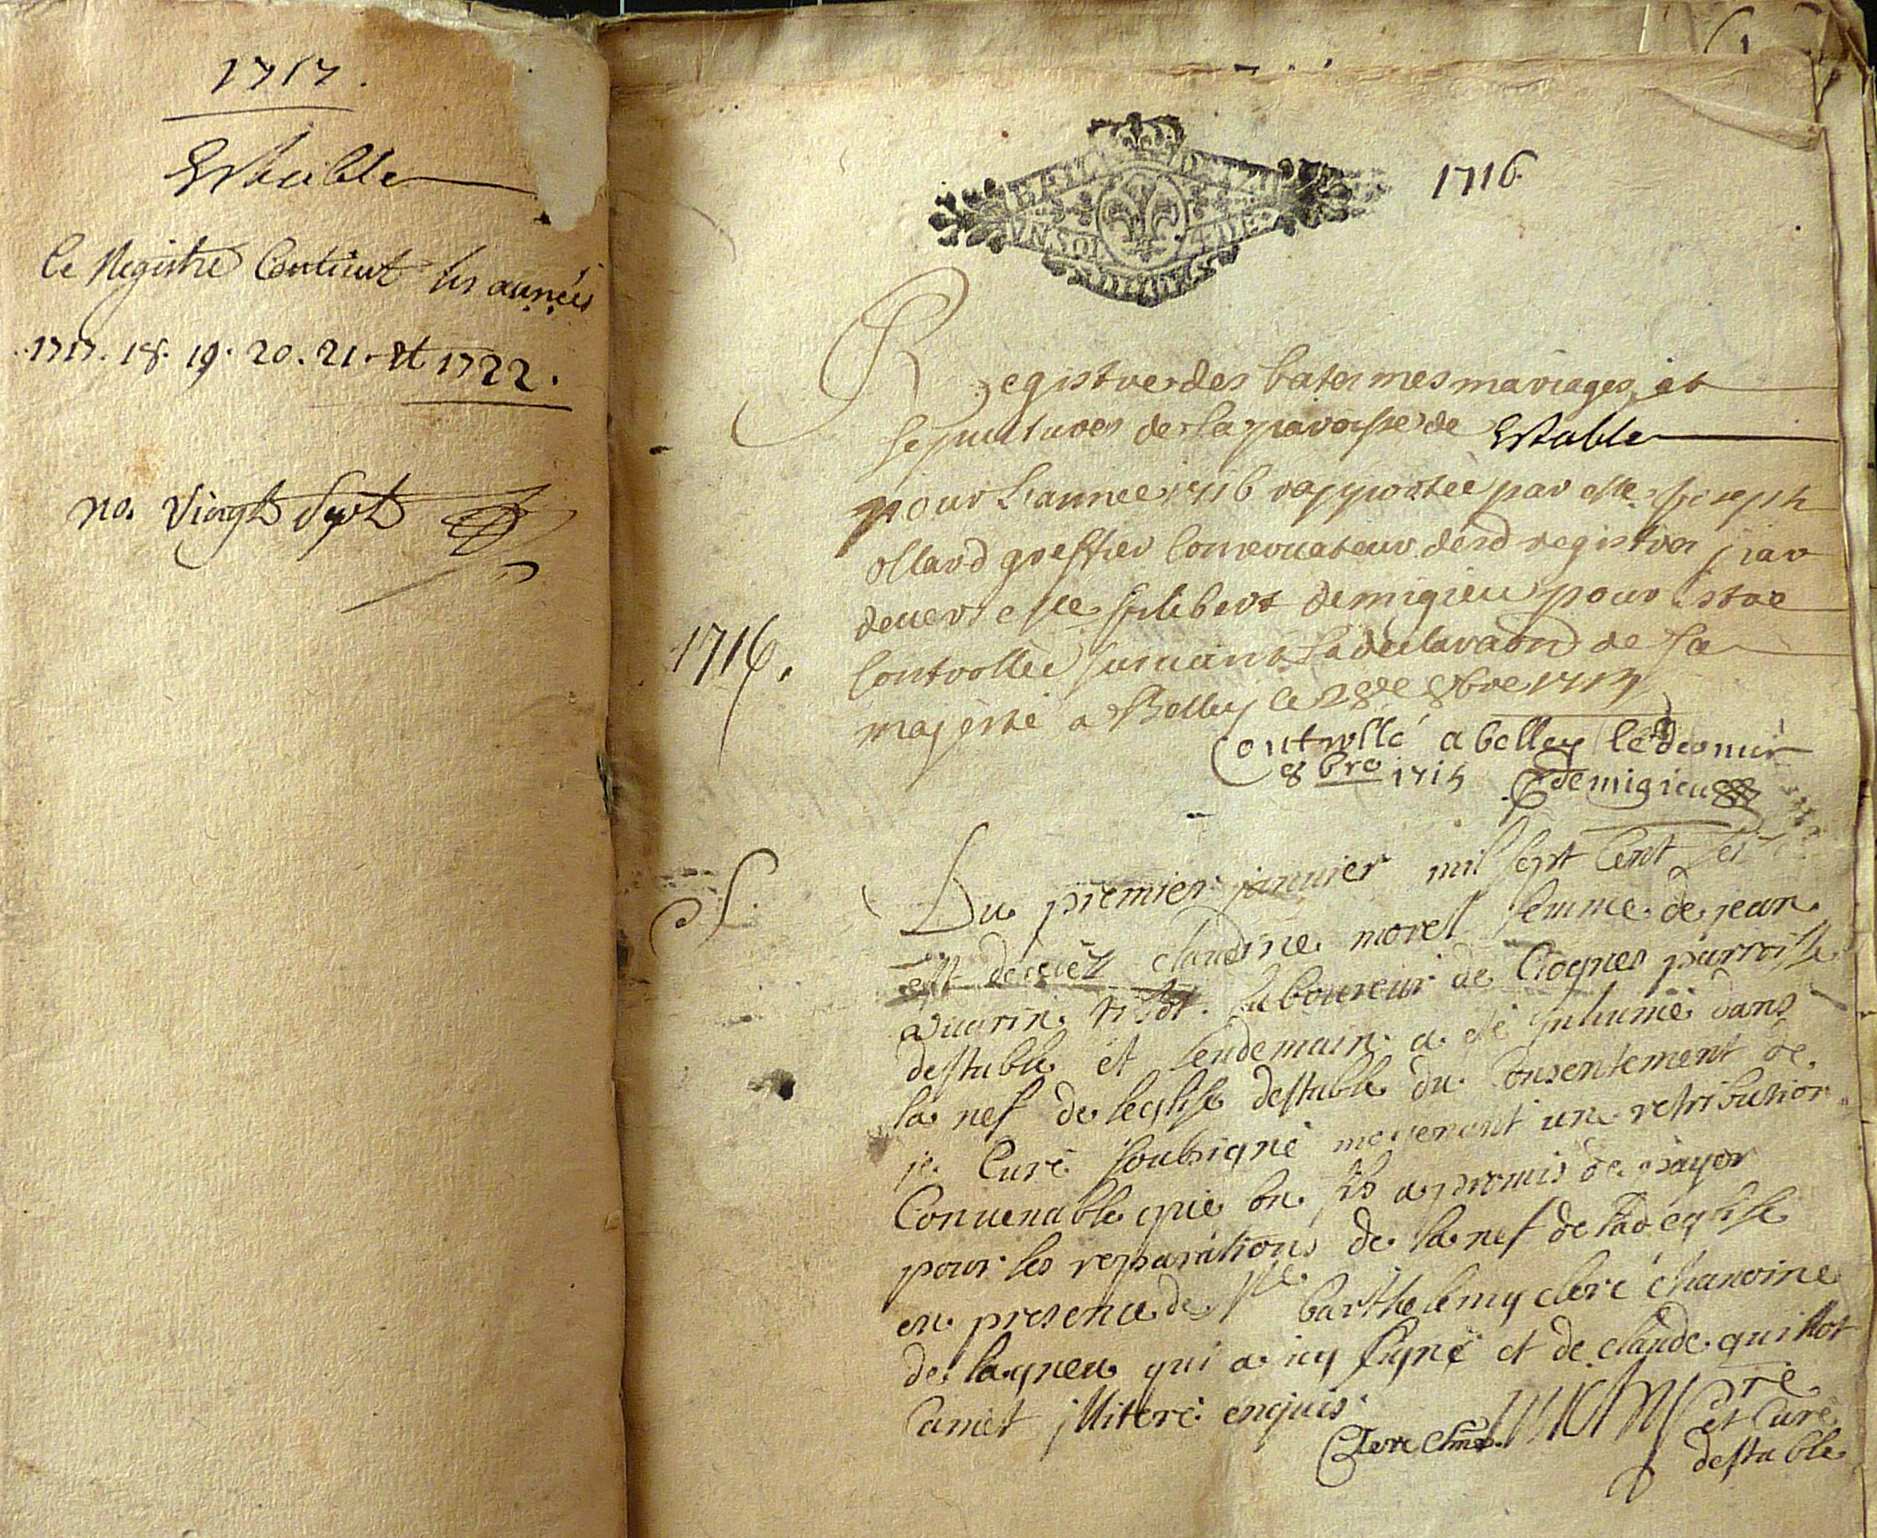 1717.
Estable
Ce Registre Contient les années
1717. 18. 19. 20. 21. et 1722.
no. Vingt Sept
1716.
GEN DE
UN SOL 4 DE
Registre des batesmes mariages et
sepultures de la paroisse de Estable
pour l'annee 1716 rapportée par Me Joseph
ollard greffier conservateur desd registres par
devers Me filibert demigieu pour estre
Controllée suivant la declaraõn de sa
majesté a Belley le 28de 8bre 1717
Controllé a belley le dernier
8bre 1717 demigieu
1716.
S.
Du premier janvier mil sept Cent sei
est decedez claudine morel femme de jean
avarin laboureur de Crognes parroisse
destable et lendemain a été inhumée dans
la nef de leglise destable du consentement de
je Curé soubsigné moyenant une retribution
Convenable que on a promis de payer
pour les reparations de la nef de lad eglise
en presence de Mre barthelemy clerc chanoine
de lagneu qui a icy signé et de claude quillot
Camet illiteré enquis.
Clerc chne. pre
et Curé
destable